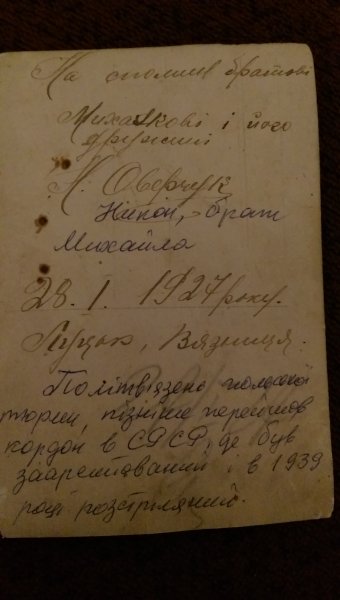 На спомин братові
Михасkові і його
дружині
Н. Оверчук
Никон, - брат
Михайла
28. I. 1927 року.
Луцьк, Вязниця.
Політвязень польської
тюрми, пізніше перейшов
кордон в СРСР, де був
заарештований і в 1939
році розстріляний.